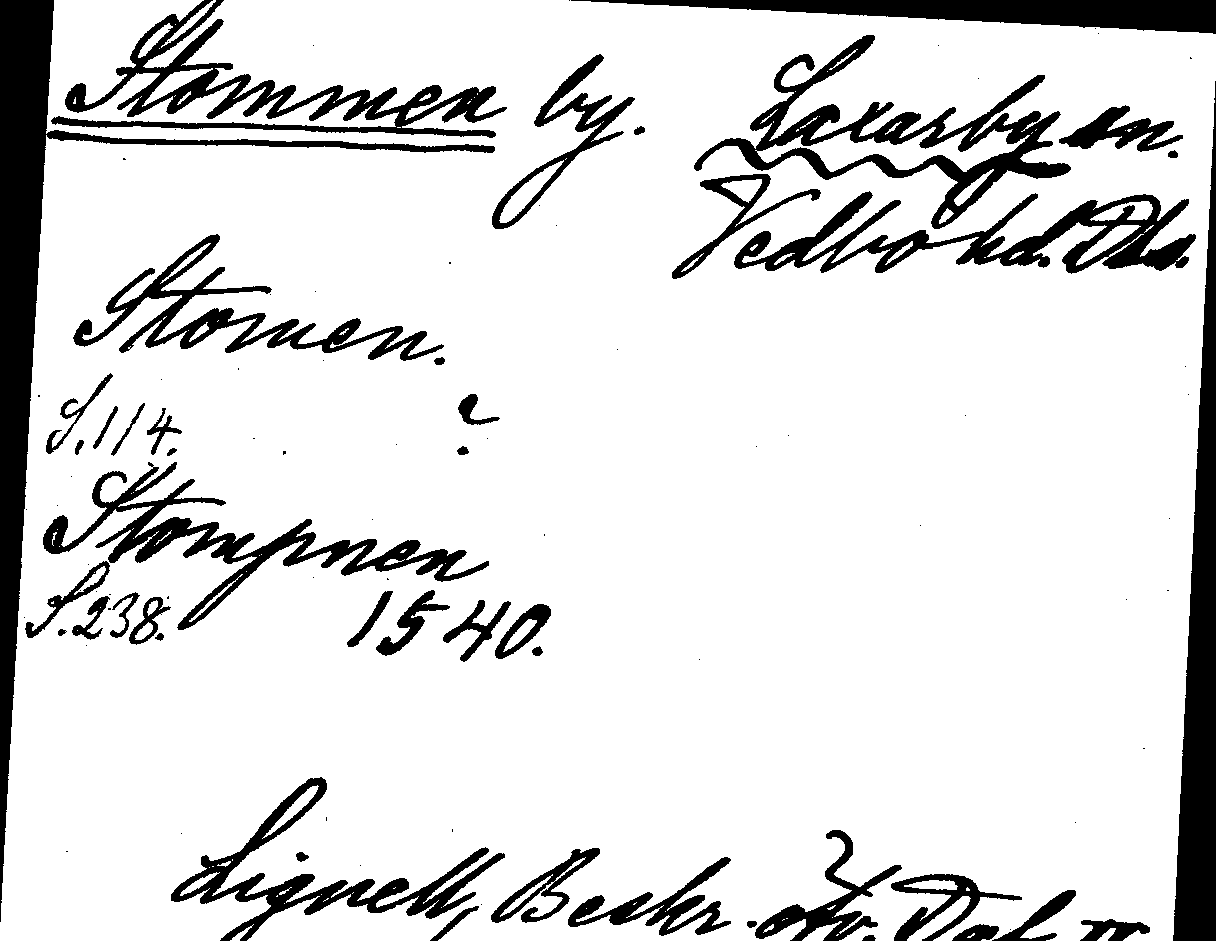 Stommen by. Laxarby sn.
Vedbo hd. Dls.
Stomen.
S.114. ?
Stompnen
S.238. 1540.
Lignell, Beskr. öfv. Dal II